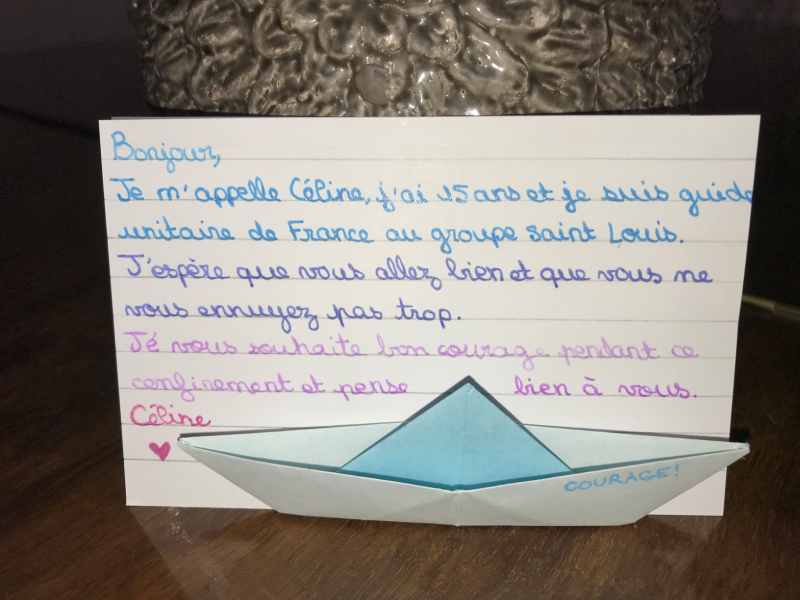 Bonjour,
Je m'appelle Céline, j'ai 15 ans et je suis guide
unitaire de France au groupe saint Louis.
J'espère que vous allez bien et que vous ne
vous ennuyez pas trop.
Jé vous souhaite bon courage pendant ce
confinement et pense bien à vous.
Céline
COURAGE!